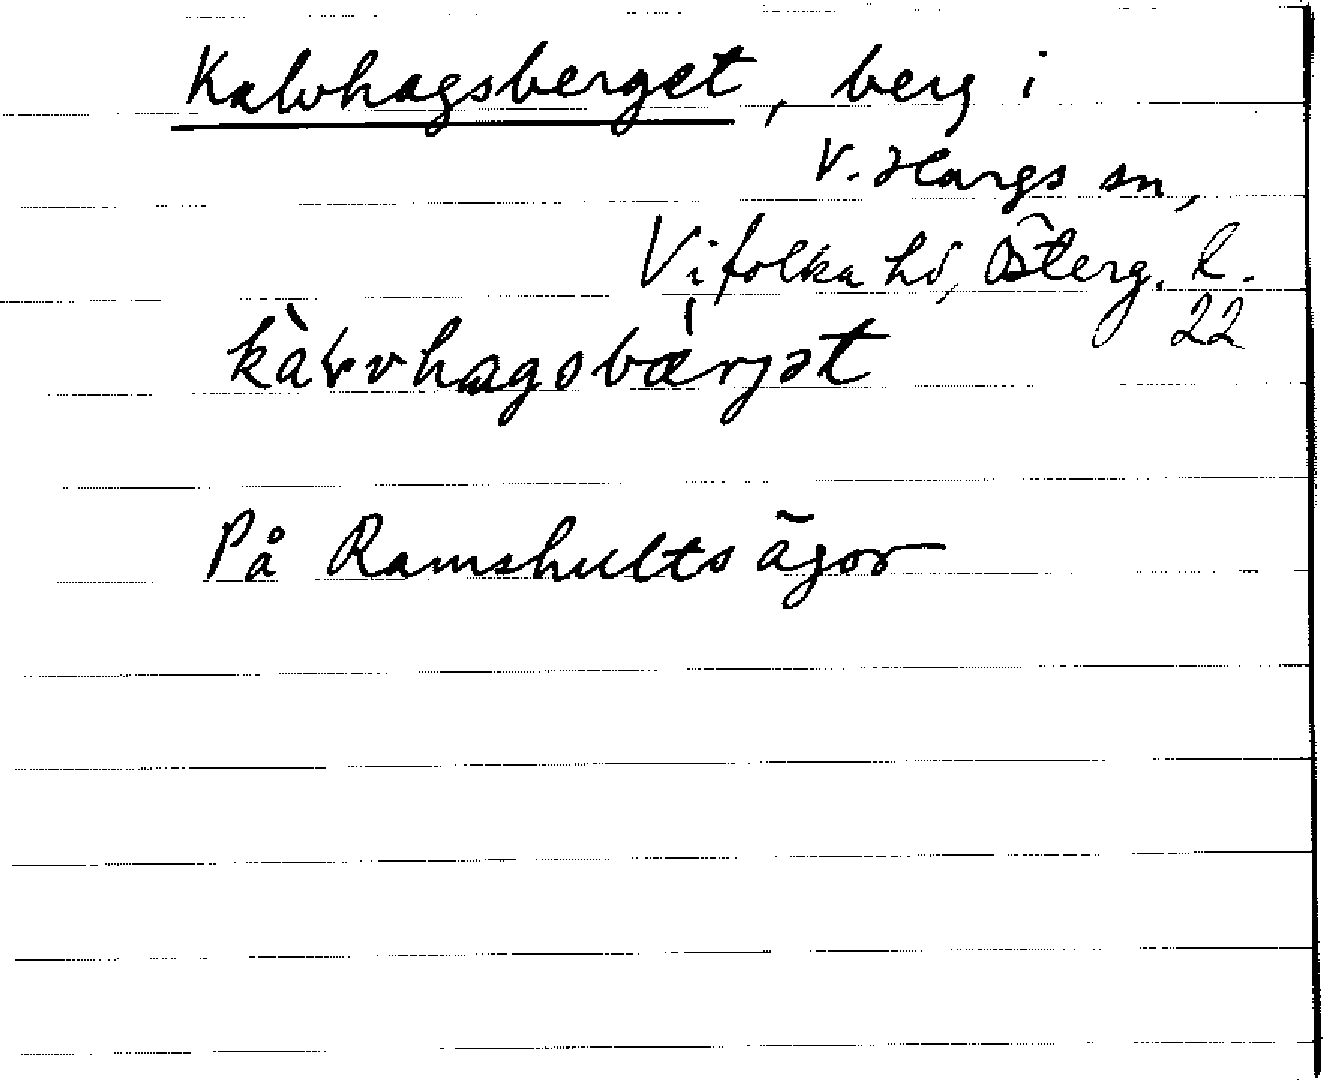 Kalvhagsberget, berg i
V. Hargs sn,
Vifolka hd, Österg. l.
22
kàrvhagsbærjət
På Ramshults ägor